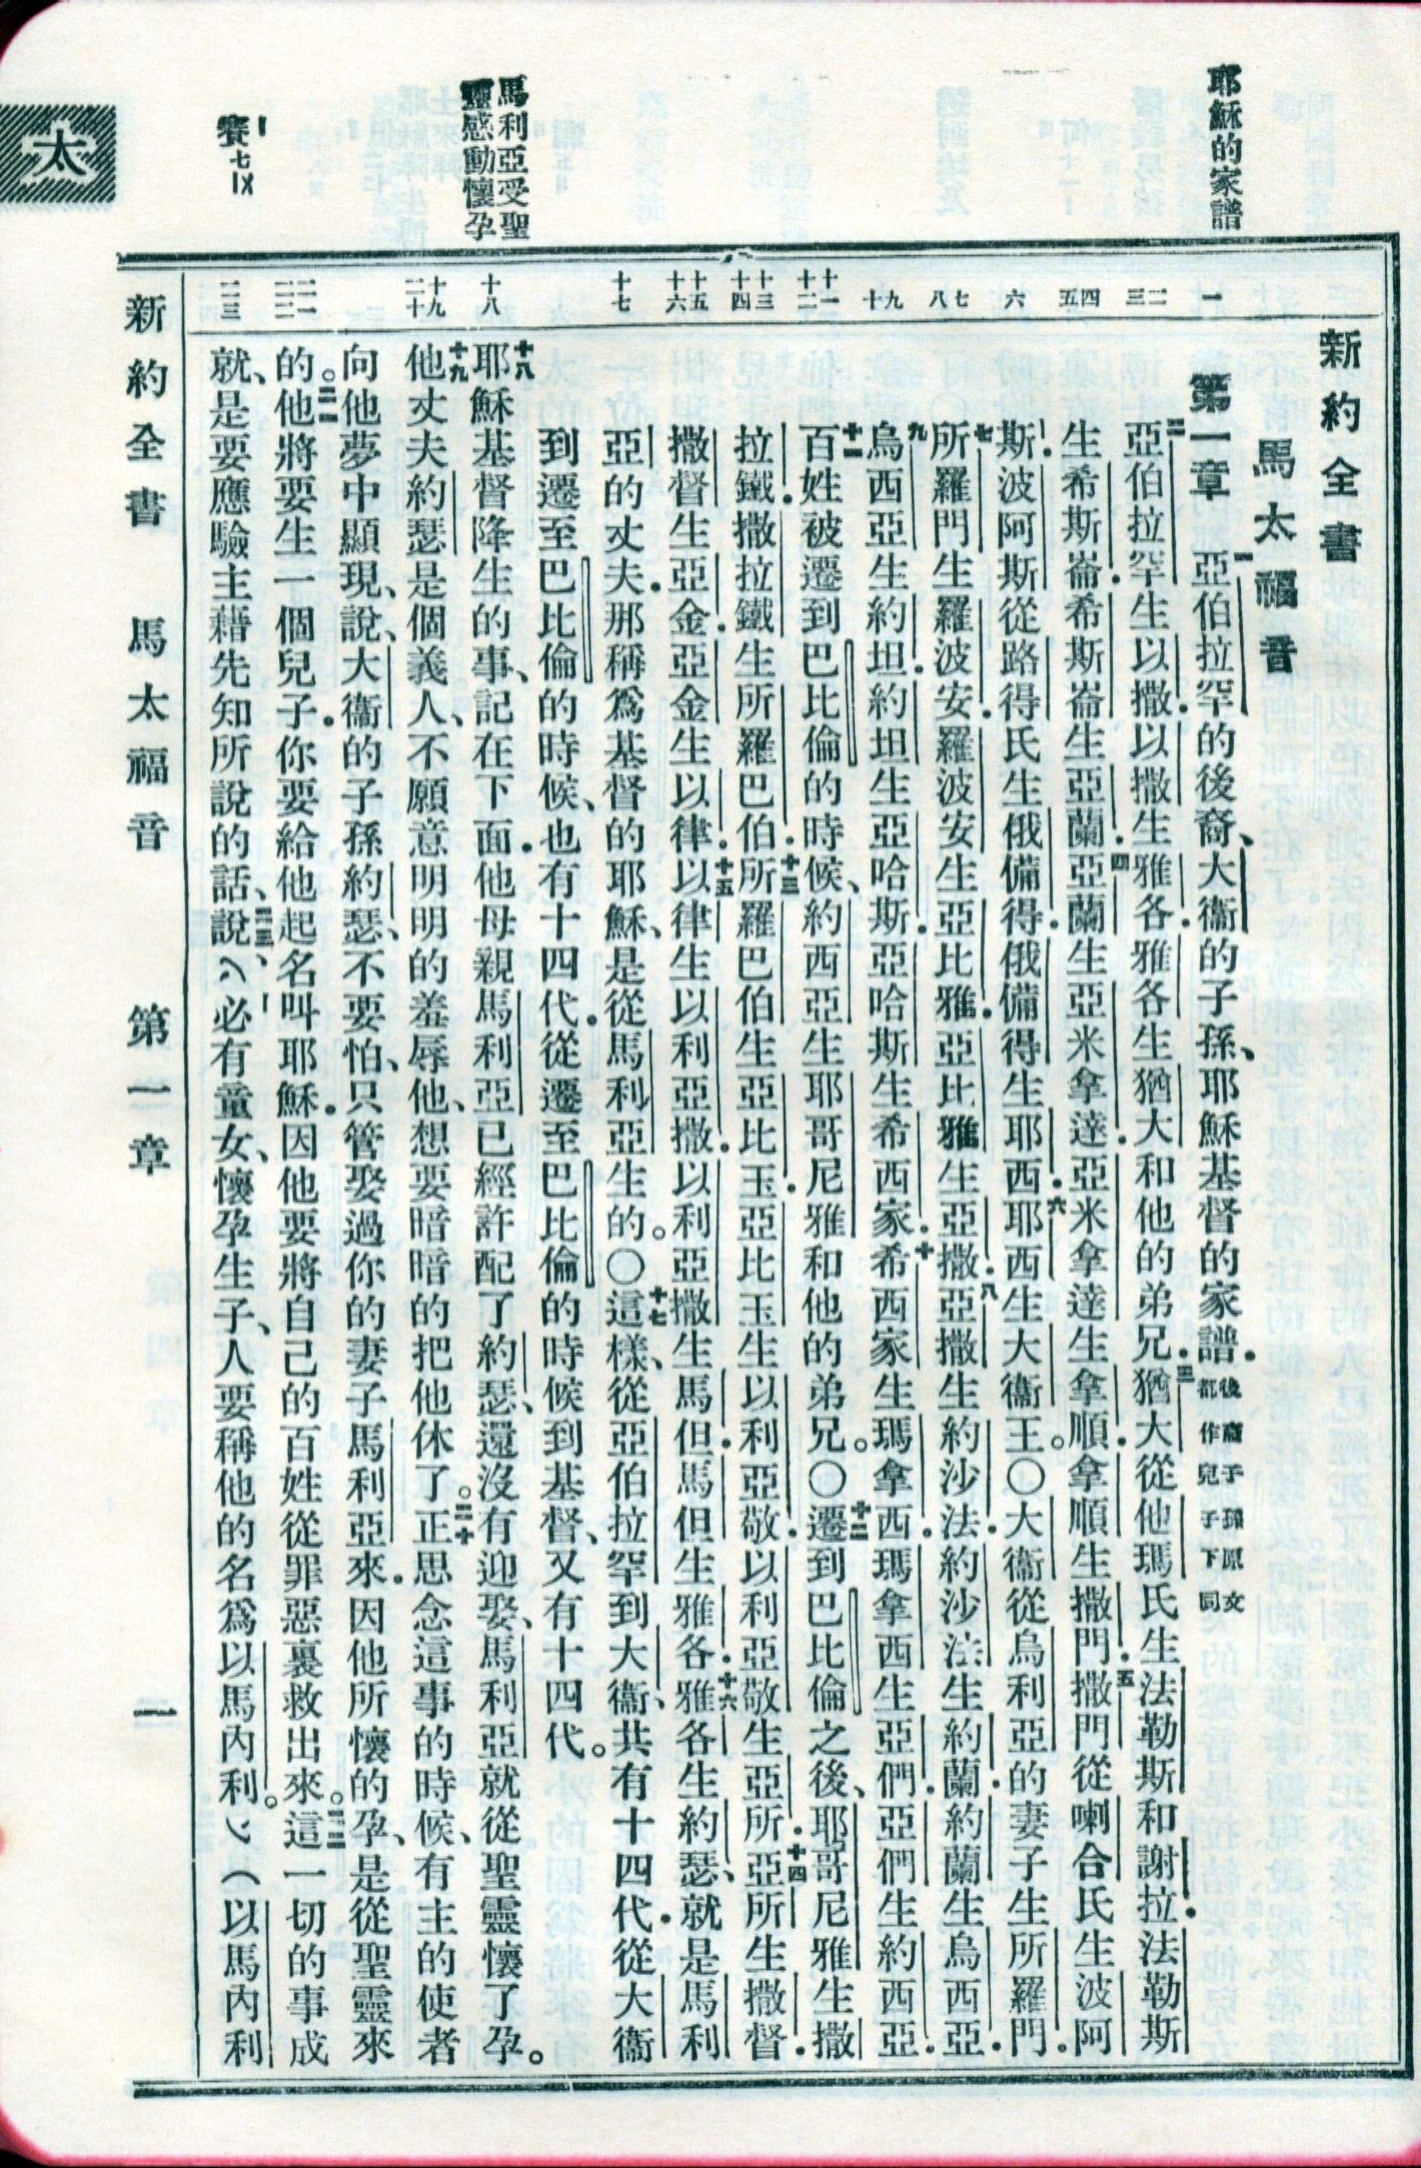 耶穌的家譜
馬利亞受聖
靈感動懷孕
賽七
太
新約全書
馬太福音
一
二三
四五
六
七八
九十
十一十二
十三十四
十五十六
十七
十八
十九二十
二一二二
二三
第一章 一亞伯拉罕的後裔、大衞的子孫、耶穌基督的家譜．後裔子孫原文都作兒子下同
二亞伯拉罕生以撒．以撒生雅各．雅各生猶大和他的弟兄．三猶大從他瑪氏生法勒斯和謝拉．法勒斯
生希斯崙．希斯崙生亞蘭．四亞蘭生亞米拿達．亞米拿達生拿順．拿順生撒門．五撒門從喇合氏生波阿
斯．波阿斯從路得氏生俄備得．俄備得生耶西．六耶西生大衞王。〇大衞從烏利亞的妻子生所羅門．
七所羅門生羅波安．羅波安生亞比雅．亞比雅生亞撒．八亞撒生約沙法．約沙法生約蘭．約蘭生烏西亞．
九烏西亞生約坦．約坦生亞哈斯．亞哈斯生希西家．十希西家生瑪拿西．瑪拿西生亞們．亞們生約西亞．
十一百姓被遷到巴比倫的時候、約西亞生耶哥尼雅和他的弟兄。〇十二遷到巴比倫之後、耶哥尼雅生撒
拉鐵．撒拉鐵生所羅巴伯．十三所羅巴伯生亞比玉．亞比玉生以利亞敬．以利亞敬生亞所．十四亞所生撒督．
撒督生亞金．亞金生以律．十五以律生以利亞撒．以利亞撒生馬但．馬但生雅各．十六雅各生約瑟、就是馬利
亞的丈夫．那稱爲基督的耶穌、是從馬利亞生的。〇十七這樣、從亞伯拉罕到大衞、共有十四代．從大衞
到遷至巴比倫的時候、也有十四代．從遷至巴比倫的時候到基督、又有十四代。
十八耶穌基督降生的事、記在下面．他母親馬利亞已經許配了約瑟、還沒有迎娶、馬利亞就從聖靈懷了孕。
十九他丈夫約瑟是個義人、不願意明明的羞辱他、想要暗暗的把他休了。二十正思念這事的時候、有主的使者
向他夢中顯現、說、大衞的子孫約瑟、不要怕、只管娶過你的妻子馬利亞來．因他所懷的孕、是從聖靈來
的。二一他將要生一個兒子．你要給他起名叫耶穌．因他要將自己的百姓從罪惡裏救出來。二二這一切的事成
就、是要應驗主藉先知所說的話、二三說、『必有童女、懷孕生子、人要稱他的名爲以馬內利。』（以馬內利
新約全書 馬太福音 第一章 一